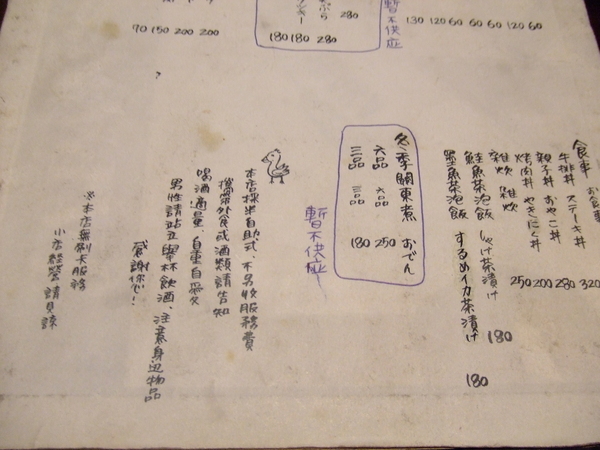 130 120 60 60 60 120 60
暫不供应
280
180 180 280
70 150 200 200
食事 お食事
牛排丼 ステーキ丼 320
親子丼 おやこ丼 280
烤肉丼 やきにく丼 200
雜炊 雑炊 250
鮭魚茶泡飯 しゃけ茶漬け 180
墨魚茶泡飯 するめイカ茶漬け 180
冬季關東煮 おでん
六品 六品 250
三品 三品 180
暫不供应
本店採半自助式,不另收服務費
攜帶外食或酒類請告知
喝酒適量,自重自愛
男性請站立舉杯飲酒,注意身邊物品
感謝你心!
※本店無刷卡服務
小店經營 請見諒